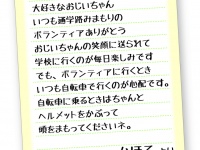 大好きなおじいちゃん
いつも通学路みまもりの
ボランティアありがとう
おじいちゃんの笑顔に送られて
学校に行くのが毎日楽しみです
でも、ボランティアに行くとき
いつも自転車で行くのが心配です。
自転車に乗るときはちゃんと
ヘルメットをかぶって
頭をまもってくださいネ。